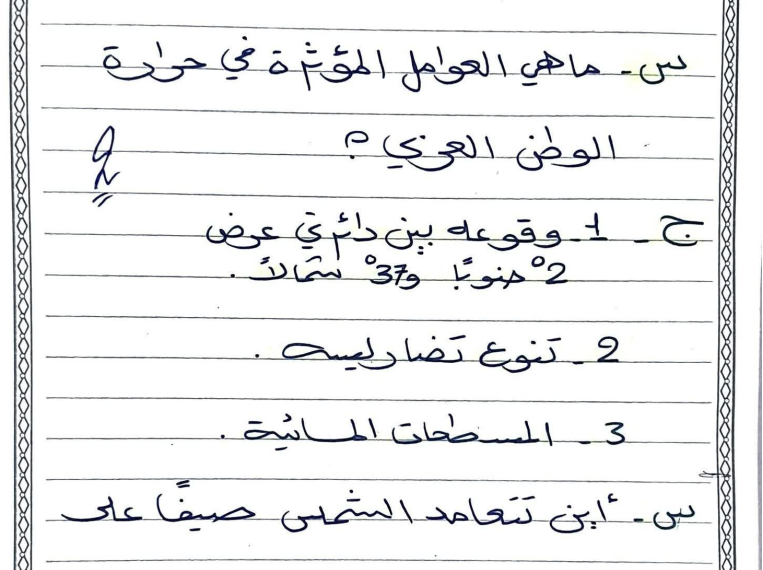 س - ما هي العوامل المؤثرة في حرارة
الوطن العربي ؟
ج - 1 - وقوعه بين دائرتي عرض
2° جنوبًا و37° شمالاً .
2 - تنوع تضاريسه .
3 - المسطحات المائية .
س - أين تتعامد الشمس صيفًا على